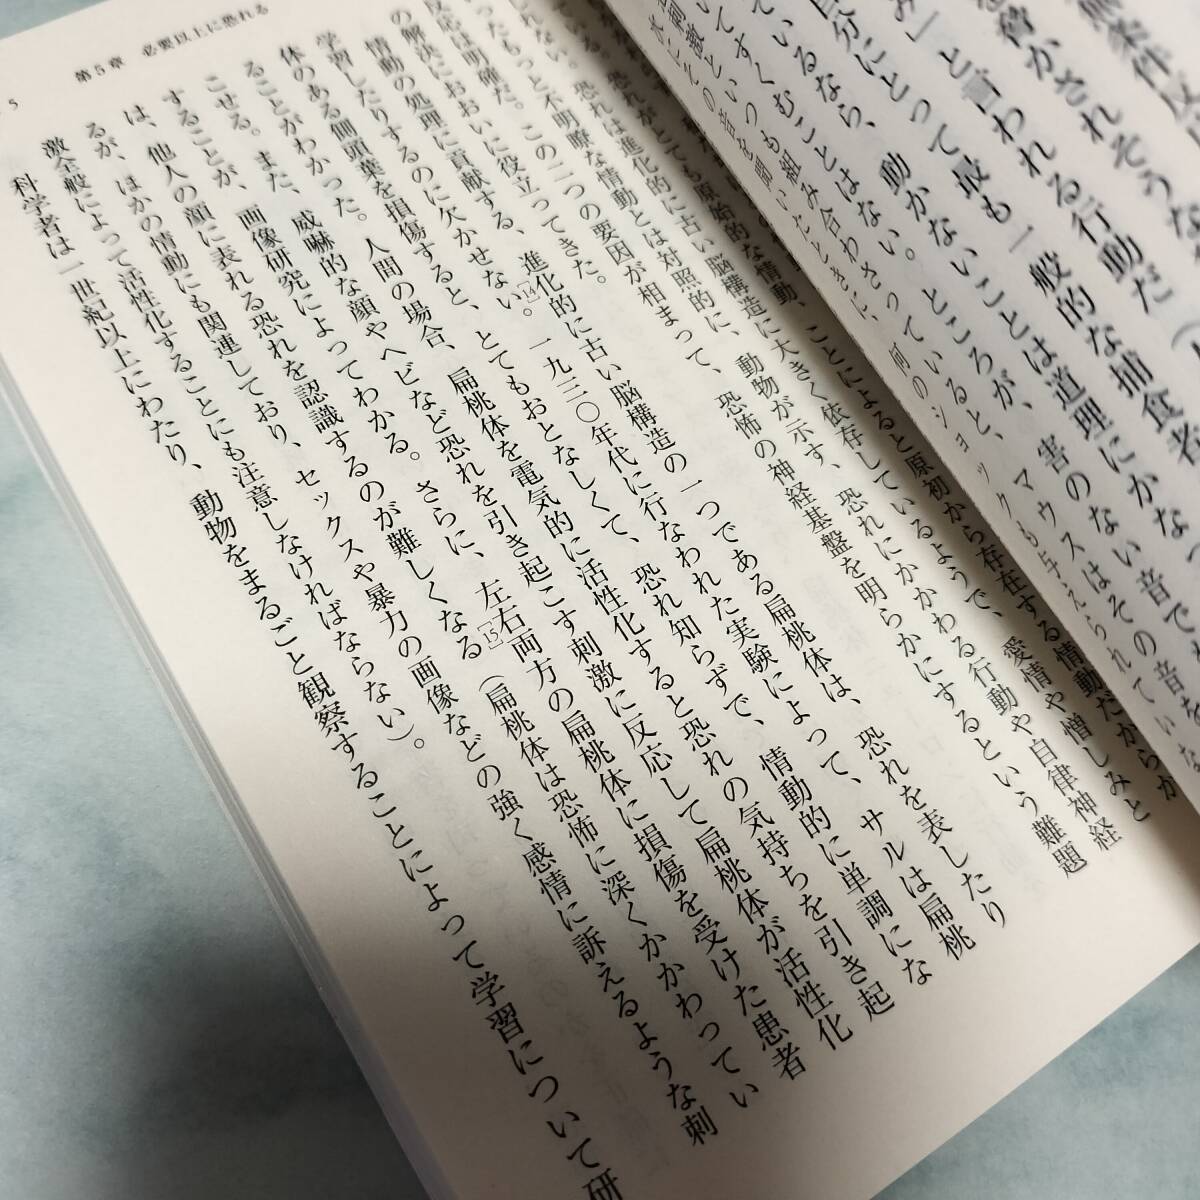 無条件反
脅かされそうな
み」と言われる行動だ（
自分にとって最も一般的な捕食者
ているなら、動かないことは道理にかな
してすくむことはない。ところが、害のない音でも
刺激といつも組み合わさっていると、マウスはその音を
その音を聞いたときに、何のショックも与えられていな
恐れがとても原始的な情動、ことによると原初から存在する情動だからか
ない。恐れは進化的に古い脳構造に大きく依存しているようで、愛情や憎しみと
いったもっと不明瞭な情動とは対照的に、動物が示す、恐れにかかわる行動や自律神経
反応は明確だ。この二つの要因が相まって、恐怖の神経基盤を明らかにするという難題
の解決におおいに役立ってきた。
情動の処理に貢献する、進化的に古い脳構造の一つである扁桃体は、恐れを表したり
学習したりするのに欠かせない[14]。一九三〇年代に行なわれた実験によって、サルは扁桃
体のある側頭葉を損傷すると、とてもおとなしくて、恐れ知らずで、情動的に単調にな
ることがわかった。人間の場合、扁桃体を電気的に活性化すると恐れの気持ちを引き起
こせる。また、威嚇的な顔やヘビなど恐れを引き起こす刺激に反応して扁桃体が活性化
することが、画像研究によってわかる。さらに、左右両方の扁桃体に損傷を受けた患者
は、他人の顔に表れる恐れを認識するのが難しくなる[15]（扁桃体は恐怖に深くかかわってい
るが、ほかの情動にも関連しており、セックスや暴力の画像などの強く感情に訴えるような刺
激全般によって活性化することにも注意しなければならない）。
科学者は一世紀以上にわたり、動物をまるごと観察することによって学習について研
第5章　必要以上に恐れる
5